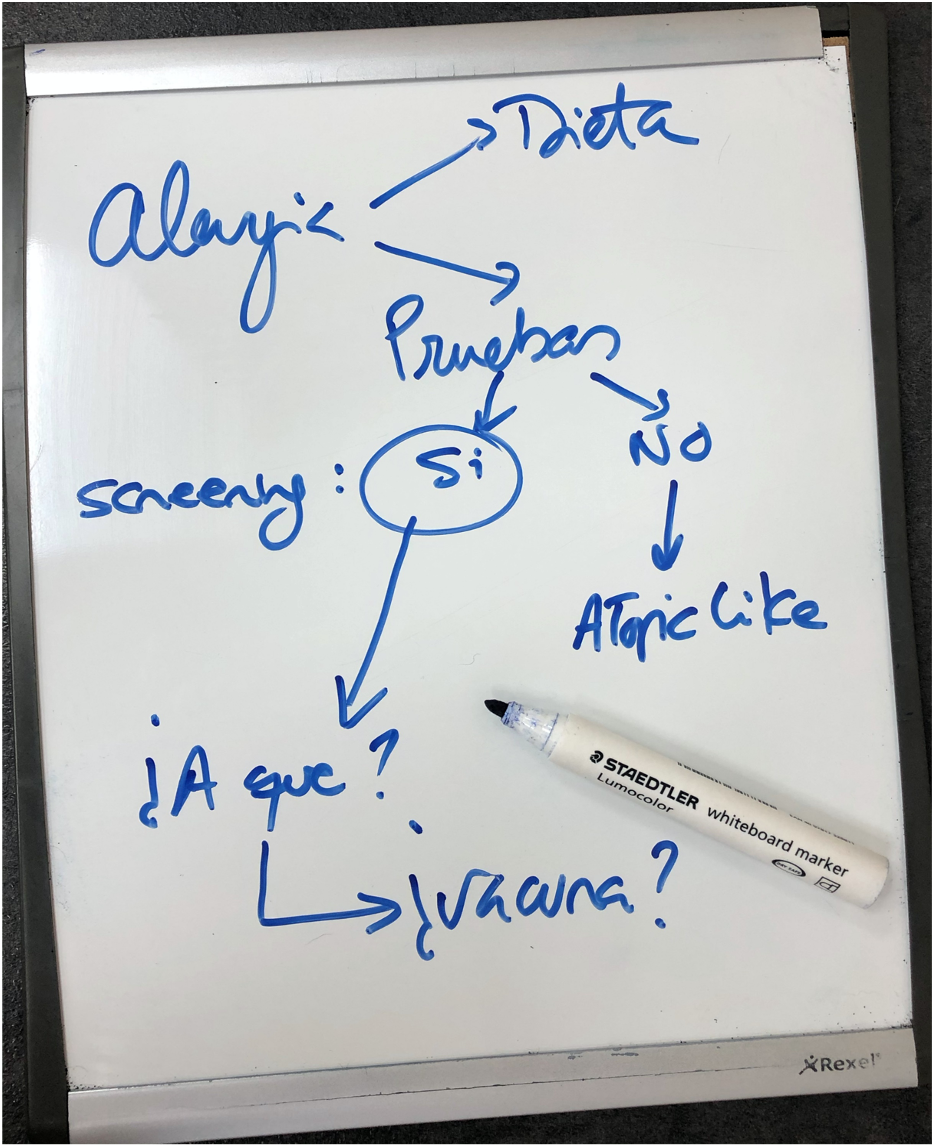 Dieta
Alergia
Pruebas
Si
NO
screening :
ATopic Like
¿A que?
¿vacuna?
STAEDTLER
Lumocolor whiteboard marker
Rexel